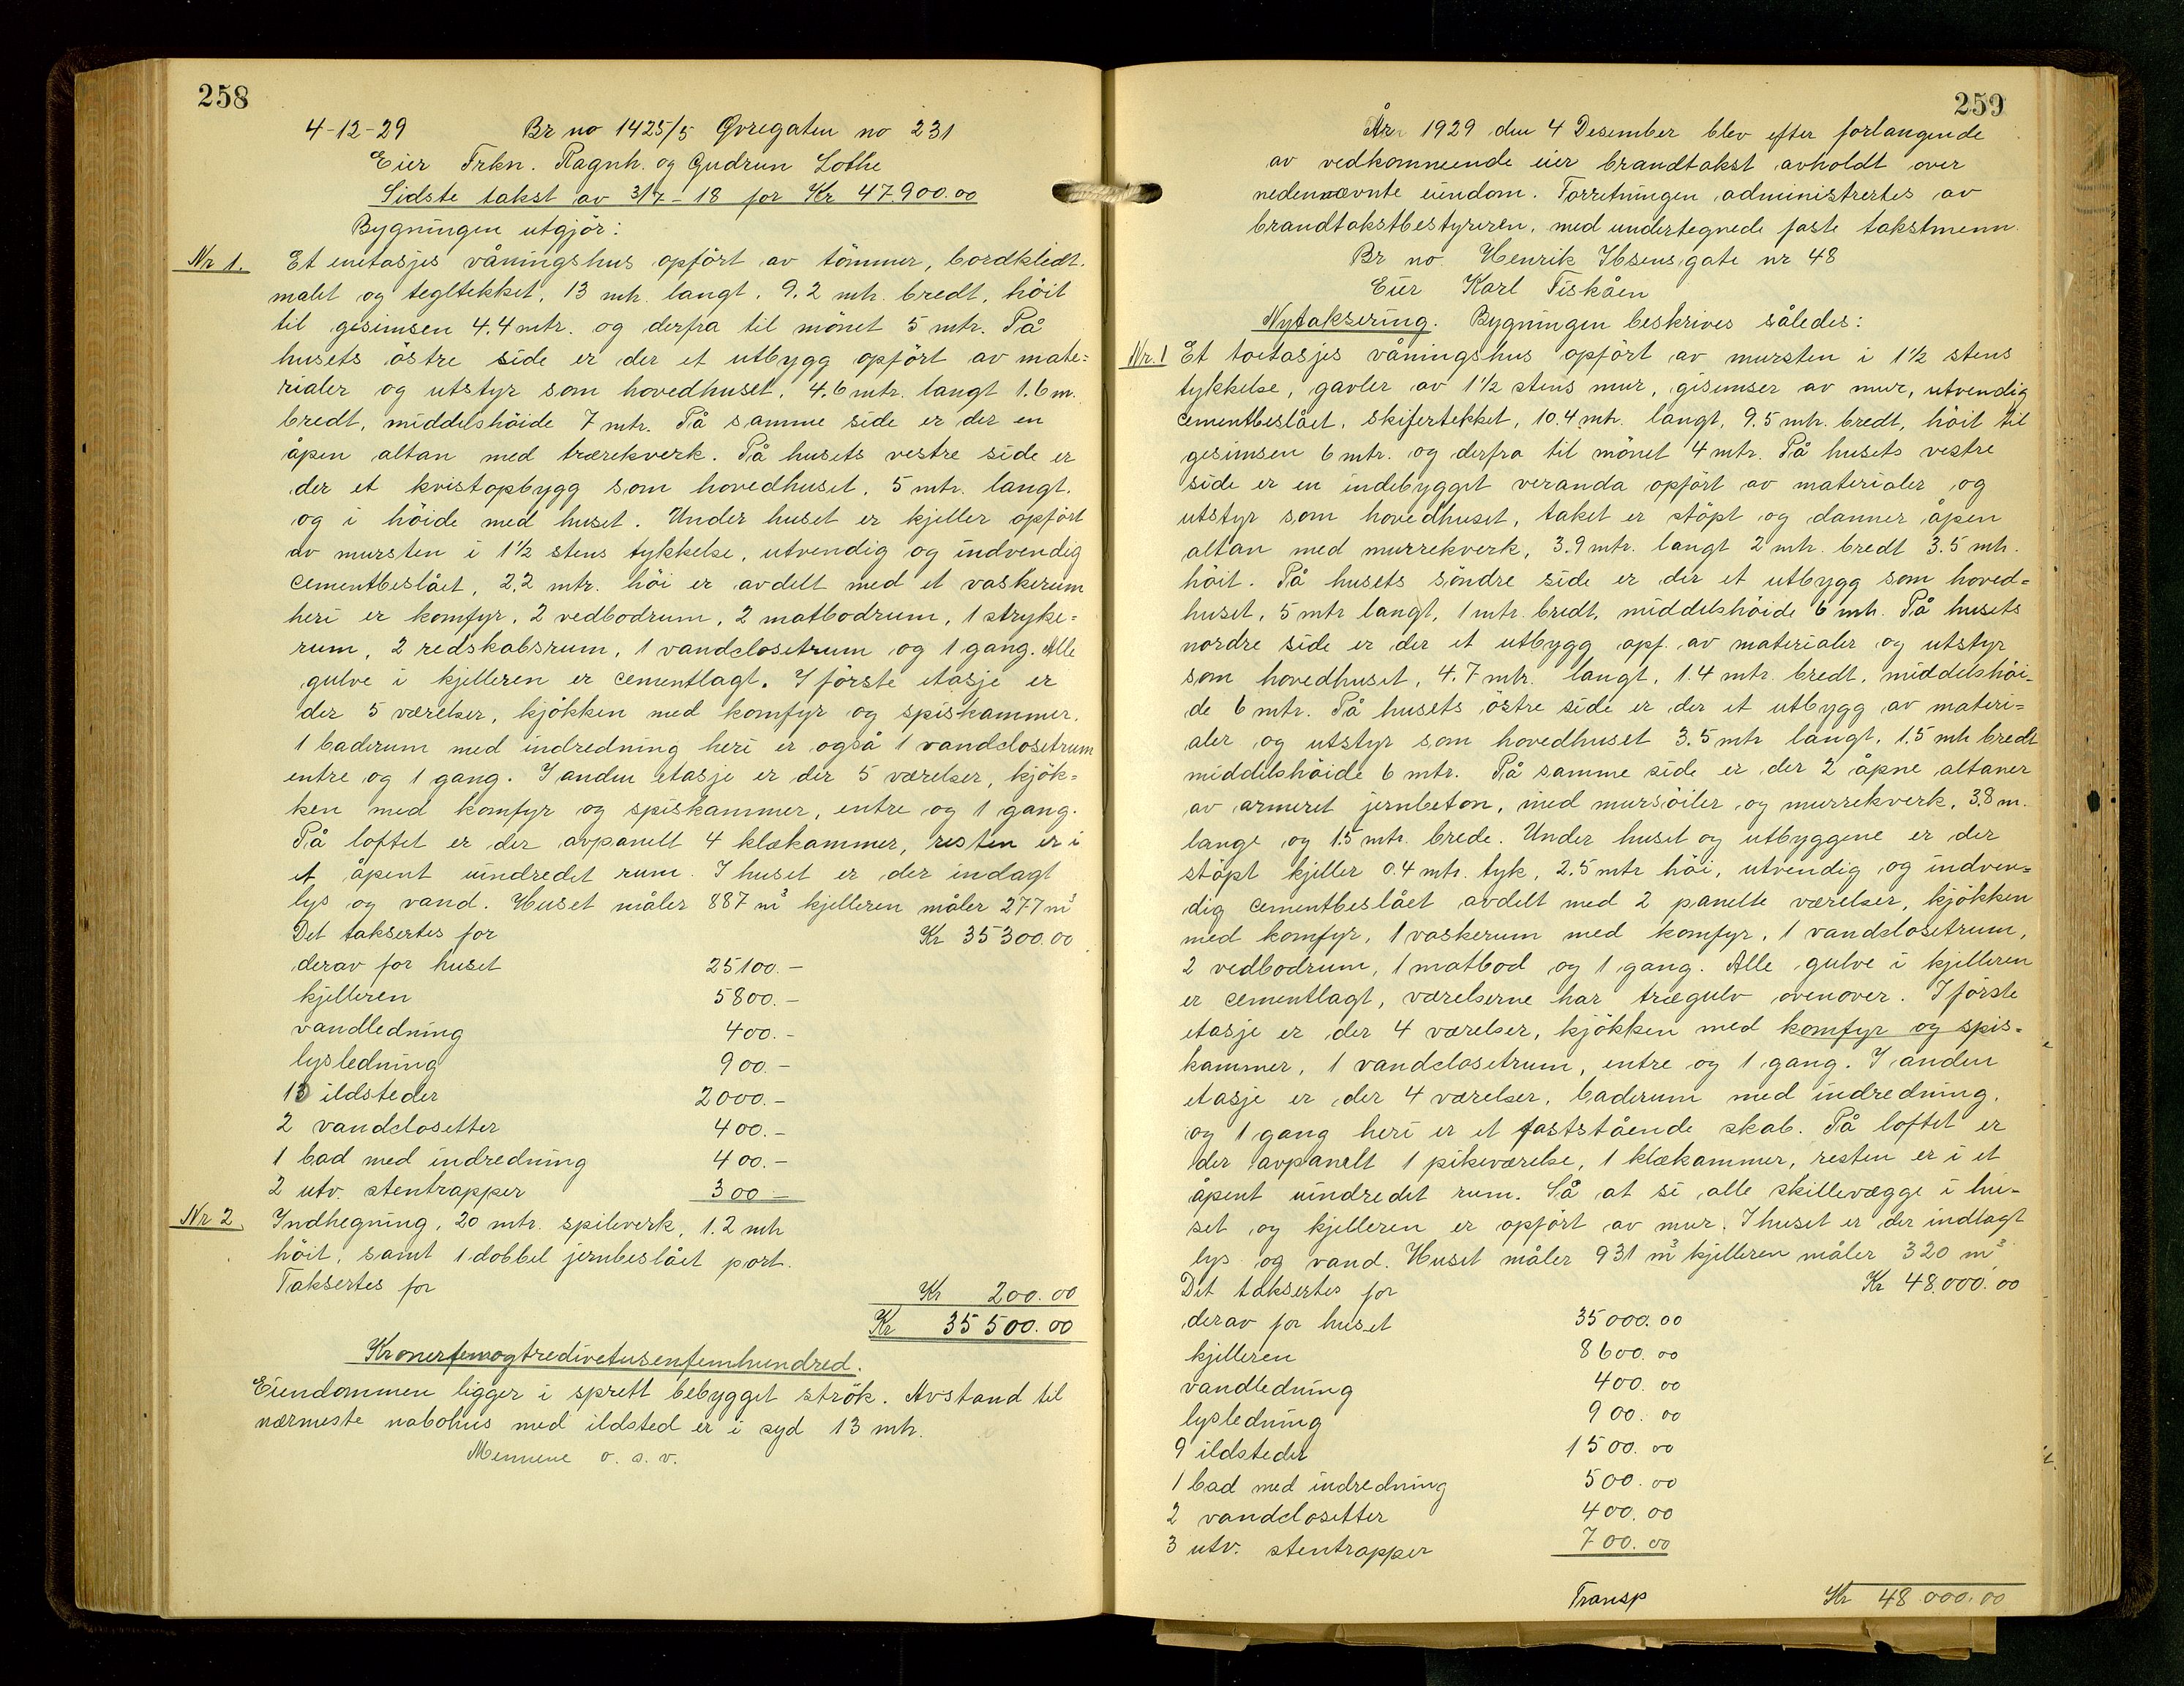 258
4-12-29 Br no 1425/5 Øvregaten no 231
Eier Frkn. Ragnh. og Gudrun Lothe
Sidste takst av 3/7-18 for Kr 47900.00
Bygningen utgjör:
Nr 1. Et enetasjes våningshus opfört av tömmer, bordklædt.
malet og tegltekket, 13 mtr. langt, 9.2 mtr. bredt, höit
til gesimsen 4.4 mtr. og derfra til mönet 5 mtr. På
husets östre side er der et utbygg opfört av mate=
rialer og utstyr som hovedhuset, 4.6 mtr. langt 1.6 m.
bredt, middelshöide 7 mtr. På samme side er der en
åpen altan med trærekverk. På husets vestre side er
der et kvistopbygg som hovedhuset, 5 mtr. langt.
og i höide med huset. Under huset er kjeller opfört
av mursten i 1½ stens tykkelse, utvendig og indvendig
cementbeslået, 2.2 mtr. höi er avdelt med et vaskerum
heri er komfyr, 2 vedbodrum, 2 matbodrum, 1 stryke=
rum, 2 redskabsrum, 1 vandclosetrum og 1 gang. Alle
gulve i kjelleren er cementlagt. I förste etasje er
der 5 værelser, kjökken med komfyr og spiskammer,
1 baderum med indredning heri er også 1 vandclosetrum
entre og 1 gang. I anden etasje er der 5 værelser, kjök=
ken med komfyr og spiskammer, entre og 1 gang.
På loftet er der avpanelt 4 klækammer, resten er i
et åpent uindredet rum. I huset er der indagt
lys og vand. Huset måler 887 m³ kjelleren måler 277 m³
Det taksertes for Kr 35300.00
derav for huset 25100.-
kjelleren 5800.-
vandledning 400.-
lysledning 900.-
13 ildsteder 2000.-
2 vandclosetter 400.-
1 bad med indredning 400.-
2 utv. stentrapper 300 -
Nr 2. Indhegning, 20 mtr. spileverk, 1.2 mtr
höit, samt 1 dobbel jernbeslået port.
Taksertes for Kr 200.00
Kr 35500.00
Kronerfemogtredivetusenfemhundred.
Eiendommen ligger i sprett bebygget strök. Avstand til
nærmeste nabohus med ildsted er i syd 13 mtr.
Mennene o. s. v.
259
År 1929 den 4 Desember blev efter forlangende
av vedkommende eier brandtakst avholdt over
nedennævnte eiendom. Forretningen administrertes av
brandtakstbestyreren, med undertegnede faste takstmenn.
Br no. Henrik Ibsens gate nr 48
Eier Karl Fiskåen
Nytaksering. Bygningen beskrives således:
Nr. 1 Et toetasjes våningshus opfört av mursten i 1½ stens
tykkelse, gavler av 1½ stens mur, gesimser av mur, utvendig
cementbeslået, skifertekket, 10.4 mtr. langt, 9.5 mtr. bredt, höit til
gesimsen 6 mtr. og derfra til mönet 4 mtr. På husets vestre
side er en indebygget veranda opfört av materialer og
utstyr som hovedhuset, taket er stöpt og danner åpen
altan med murrekverk, 3.9 mtr. langt 2 mtr. bredt 3.5 mtr.
höit. På husets söndre side er der et utbygg som hoved=
huset, 5 mtr langt, 1 mtr. bredt, middelshöide 6 mtr. På husets
nordre side er der et utbygg opf. av materialer og utstyr
som hovedhuset, 4.7 mtr. langt, 1.4 mtr. bredt, middelshöi-
de 6 mtr. På husets östre side er der et utbygg av materi=
aler og utstyr som hovedhuset 3.5 mtr langt, 1.5 mtr bredt
middelshöide 6 mtr. På samme side er der 2 åpne altaner
av armeret jernbeton, med mursöiler og murrekverk, 3.8 m.
lange og 1.5 mtr. brede. Under huset og utbyggene er der
stöpt kjeller 0.4 mtr. tyk, 2.5 mtr höi, utvendig og indven=
dig cementbeslået avdelt med 2 panelte værelser, kjökken
med komfyr, 1 vaskerum med komfyr, 1 vandclosetrum,
2 vedbodrum, 1 matbod og 1 gang. Alle gulve i kjelleren
er cementlagt, værelserne har trægulv ovenover. I förste
etasje er der 4 værelser, kjökken med komfyr og spis-
kammer, 1 vandclosetrum, entre og 1 gang. I anden
etasje er der 4 værelser, baderum med indredning,
og 1 gang heri er et faststående skab. På loftet er
der avpanelt 1 pikeværelse, 1 klækammer, resten er i et
åpent uindredet rum. Så at si alle skillevægge i hu-
set og kjelleren er opfört av mur. I huset er der indlagt
lys og vand. Huset måler 931 m³ kjelleren måler 320 m³
Det taksertes for Kr 48.000.00
derav for huset 35000.00
kjelleren 8600.00
vandledning 400.00
lysledning 900.00
9 ildsteder 1500.00
1 bad med indredning 500.00
2 vandclosetter 400.00
3 utv. stentrapper 700.00
Transp Kr 48 000.00